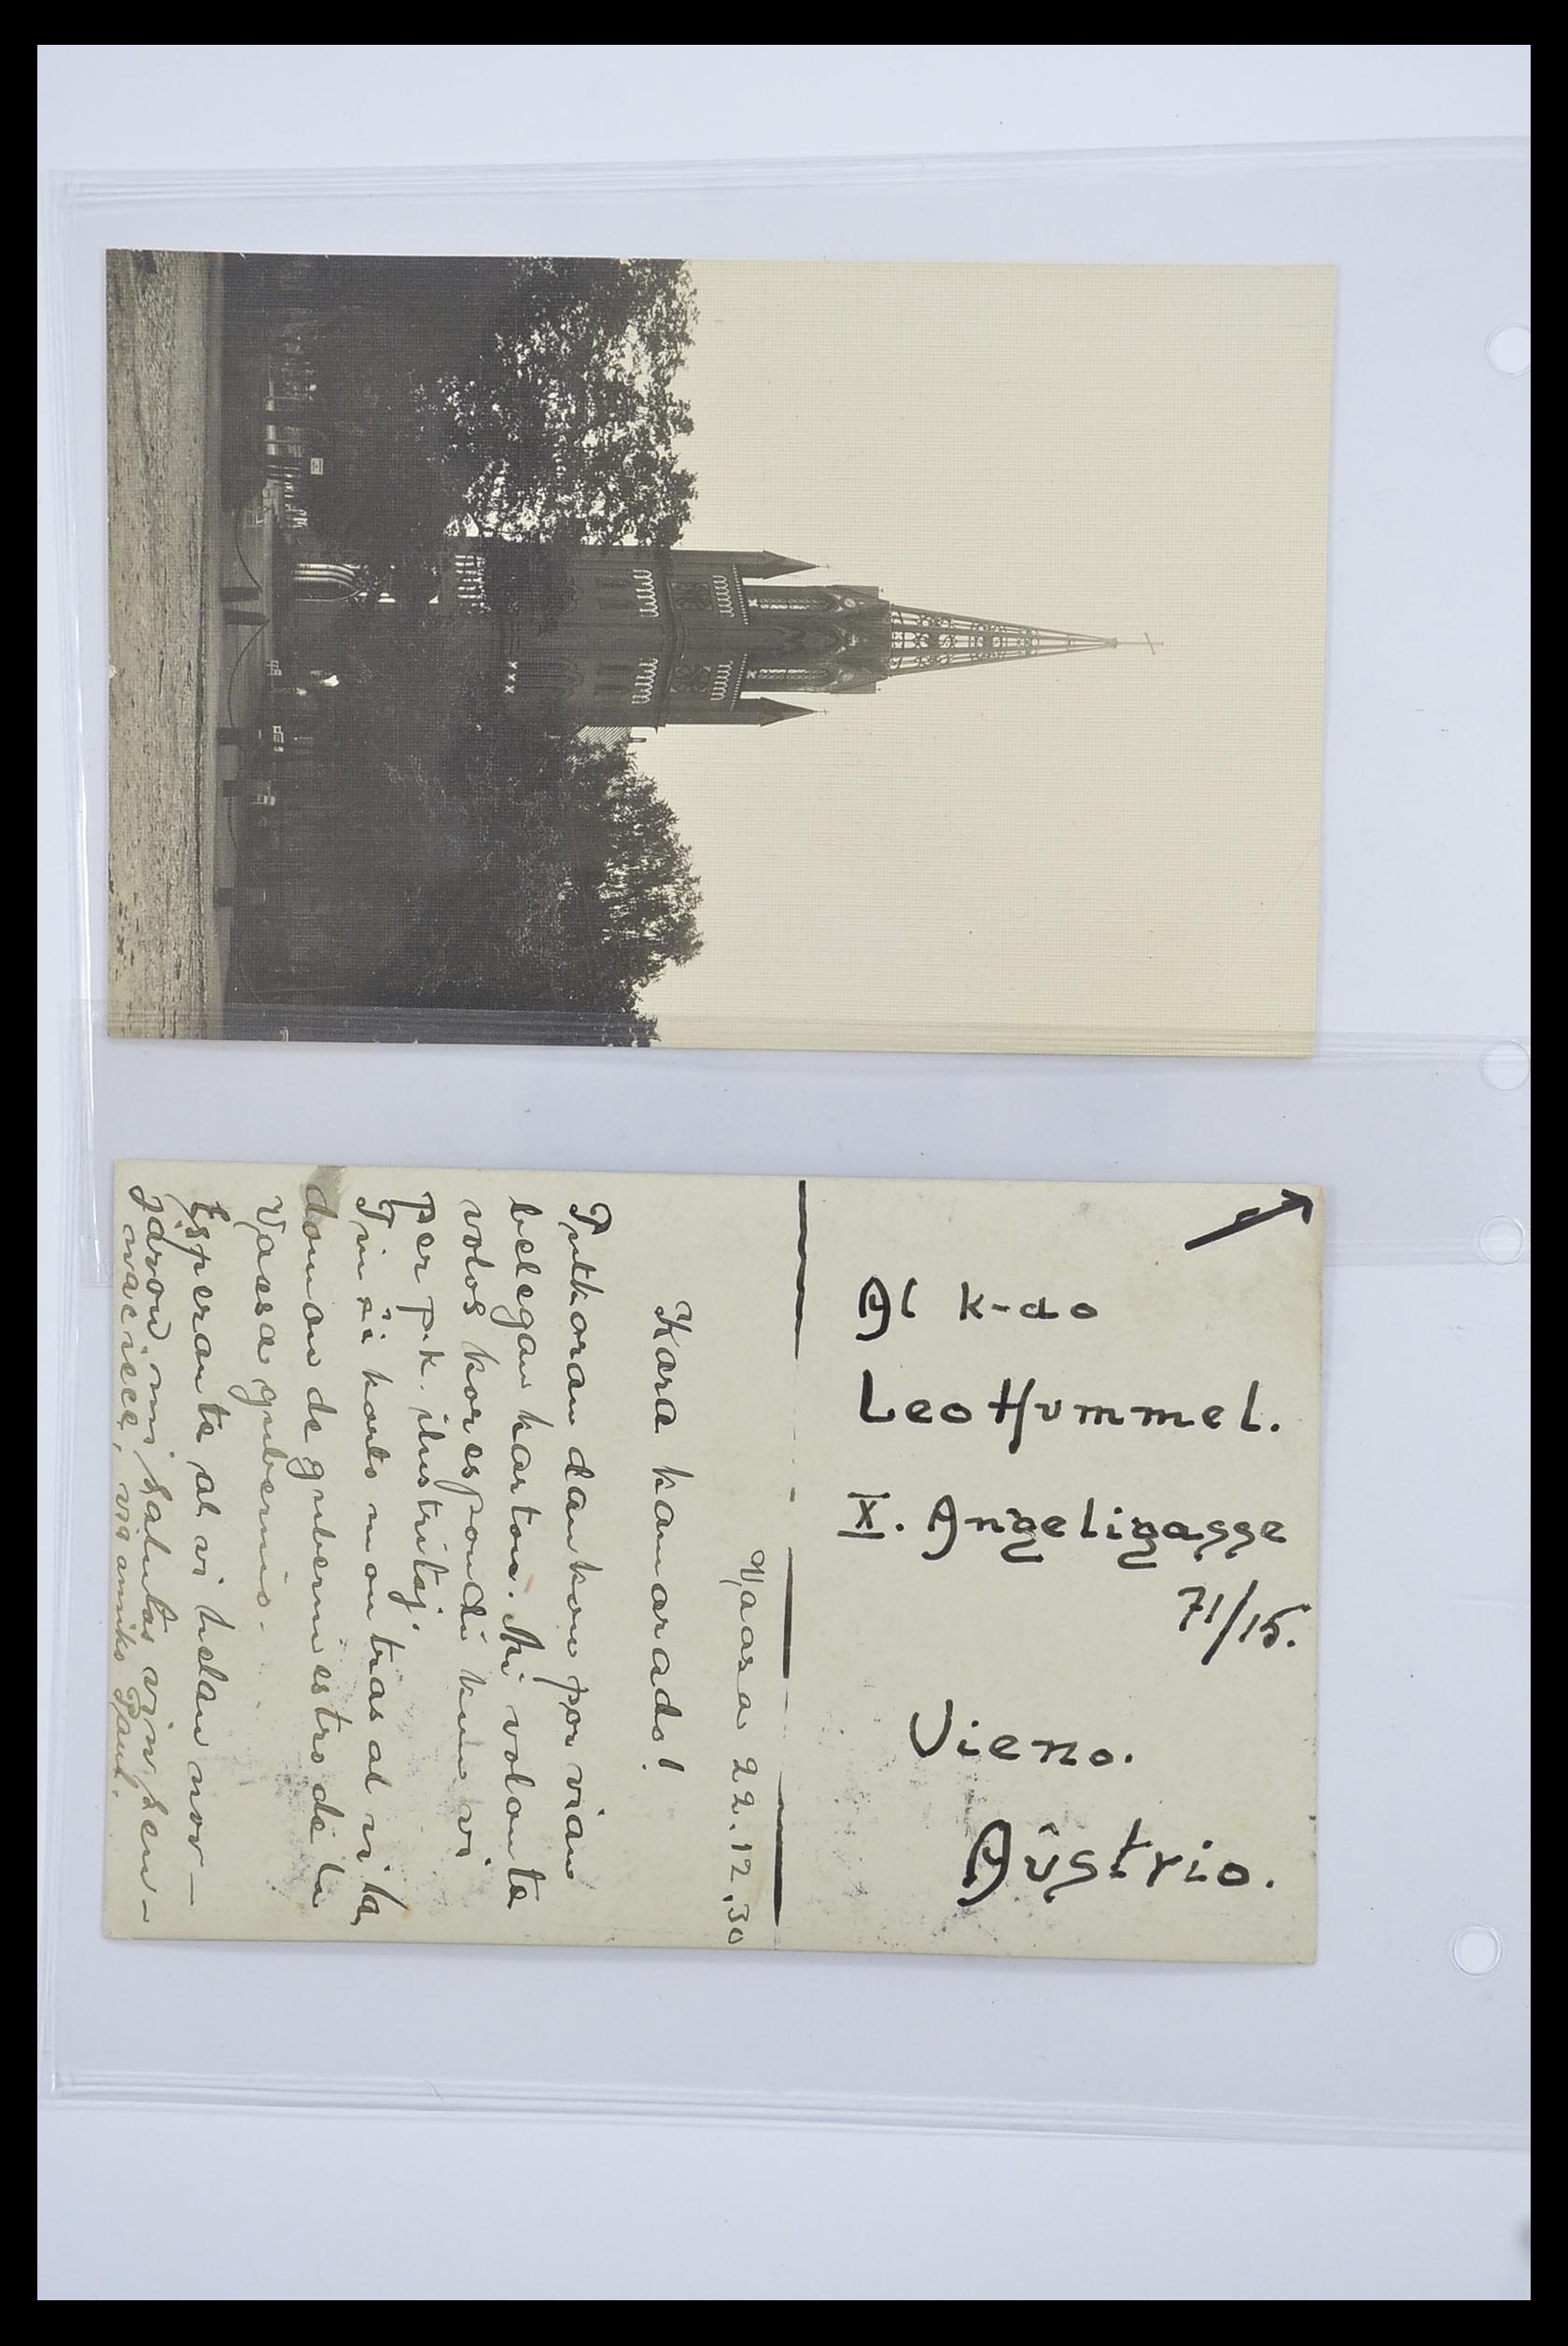 Al k-do
Leo Hummel.
X. Angeligasse
71/15.
Vieno.
Aŭstrio.
Vaasa 22.12.30
Kara kamarado!
Putkoran dankon por vian
belegan karton. Mi volonte
volos korespondi kun vi
per p.k. ilustritaj.
Tin ĉi karto montras al vi la
domon de guberniestro de la
Vaasa gubernio.
Esperante al vi helan nov-
jaron, mi salutas vin sen-
naciece, via amiko Paul.